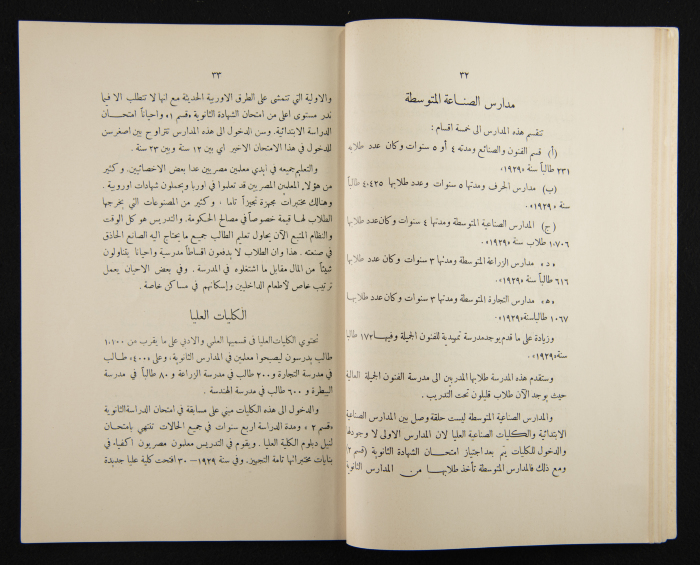 ٣٢
مدارس الصناعة المتوسطة
تنقسم هذه المدارس الى خمسة اقسام :
(أ) قسم الفنون والصنائع ومدته ٤ أو ٥ سنوات وكان عدد طلابه
٢٣١ طالباً سنة «١٩٢٩».
(ب) مدارس الحرف ومدتها ٥ سنوات وعدد طلابها ٤٠٤٢٥ طالباً
سنة «١٩٢٩».
(ج) المدارس الصناعية المتوسطة ومدتها ٤ سنوات وكان عدد طلابها
١٠٧٠٦ طلاب سنة «١٩٢٩».
«د» مدارس الزراعة المتوسطة ومدتها ٣ سنوات وكان عدد طلابها
٦١٦ طالباً سنة «١٩٢٩».
«ه» مدارس التجارة المتوسطة ومدتها ٣ سنوات وكان عدد طلابها
١٠٦٧ طالبا سنة «١٩٢٩».
وزيادة على ما قدم يوجد مدرسة تمهيدية للفنون الجميلة وفيها ١٧٢ طالبا
سنة «١٩٢٩».
وستقدم هذه المدرسة طلابها المدربين الى مدرسة الفنون الجميلة العالية
حيث يوجد الآن طلاب قليلون تحت التدريب .
والمدارس الصناعية المتوسطة ليست حلقة وصل بين المدارس الصناعة
الابتدائية والكليات الصناعية العليا لان المدارس الاولى لا وجود لها
والدخول للكليات يتم بعد اجتياز امتحان الشهادة الثانوية (قسم ٢)
ومع ذلك فالمدارس المتوسطة تأخذ طلابها من المدارس الثانوية
٣٣
والاولية التي تتمشى على الطرق الاوربية الحديثة مع انها لا تتطلب الا فيما
ندر مستوى اعلى من امتحان الشهادة الثانوية «قسم ١» واحياناً امتحان
الدراسة الابتدائية. وسن الدخول الى هذه المدارس تتراوح بين اصغر سن
للدخول في هذا الامتحان الاخير اي بين ١٢ سنة وبين ٢٣ سنة .
والتعليم جميعه في ايدي معلمين مصريين عدا بعض الاخصائيين. وكثير
من هؤلاء المعلمين المصريين قد تعلموا في اوربا ويحملون شهادات اوروبية .
وهنالك مختبرات مجهزة تجهيزاً تاما ، وكثير من المصنوعات التي يخرجها
الطلاب لها قيمة خصوصاً في مصالح الحكومة. والتدريس هو كل الوقت
والنظام المتبع الآن يحاول تعليم الطالب جميع ما يحتاج اليه الصانع الحاذق
في صنعته . هذا وان الطلاب لا يدفعون اقساطاً مدرسية واحيانا يتناولون
شيئاً من المال مقابل ما اشتغلوه في المدرسة . وفي بعض الاحيان يعمل
ترتيب خاص لاطعام الداخليين وإسكانهم في مساكن خاصة .
الكليات العليا
تحتوي الكليات العليا في قسميها العلمي والادبي على ما يقرب من ١٠١٠٠
طالب يدرسون ليصبحوا معلمين في المدارس الثانوية، وعلى «٤٠٠» طالب
في مدرسة التجارة و٢٠٠ طالب في مدرسة الزراعة و ٨٠ طالباً في مدرسة
البيطرة و ٦٠٠ طالب في مدرسة الهندسة .
والدخول الى هذه الكليات مبني على مسابقة في امتحان الدراسة الثانوية
«قسم ٢» ومدة الدراسة اربع سنوات في جميع الحالات تنتهي بامتحان
لنيل دبلوم الكلية العليا . ويقوم في التدريس معلمون مصريون اكفياء في
بنايات مختبراتها تامة التجهيز. وفي سنة ١٩٢٩ – ٣٠ افتتحت كلية عليا جديدة